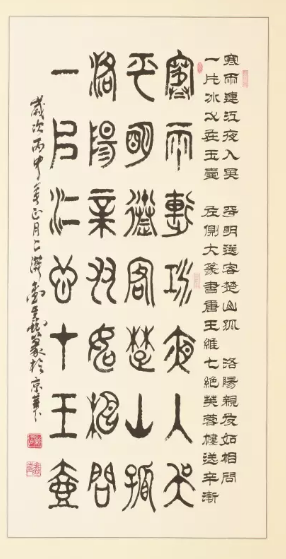 寒雨連江夜入吳 平明送客楚山孤 洛陽親友如相問
一片冰心在玉壺 大篆書唐王維七絕芙蓉樓送辛漸
寒雨連江夜入吳
平明送客楚山孤
洛陽親友如相問
一片冰心在玉壺
歲次丙申年正月上浣 篆於京華